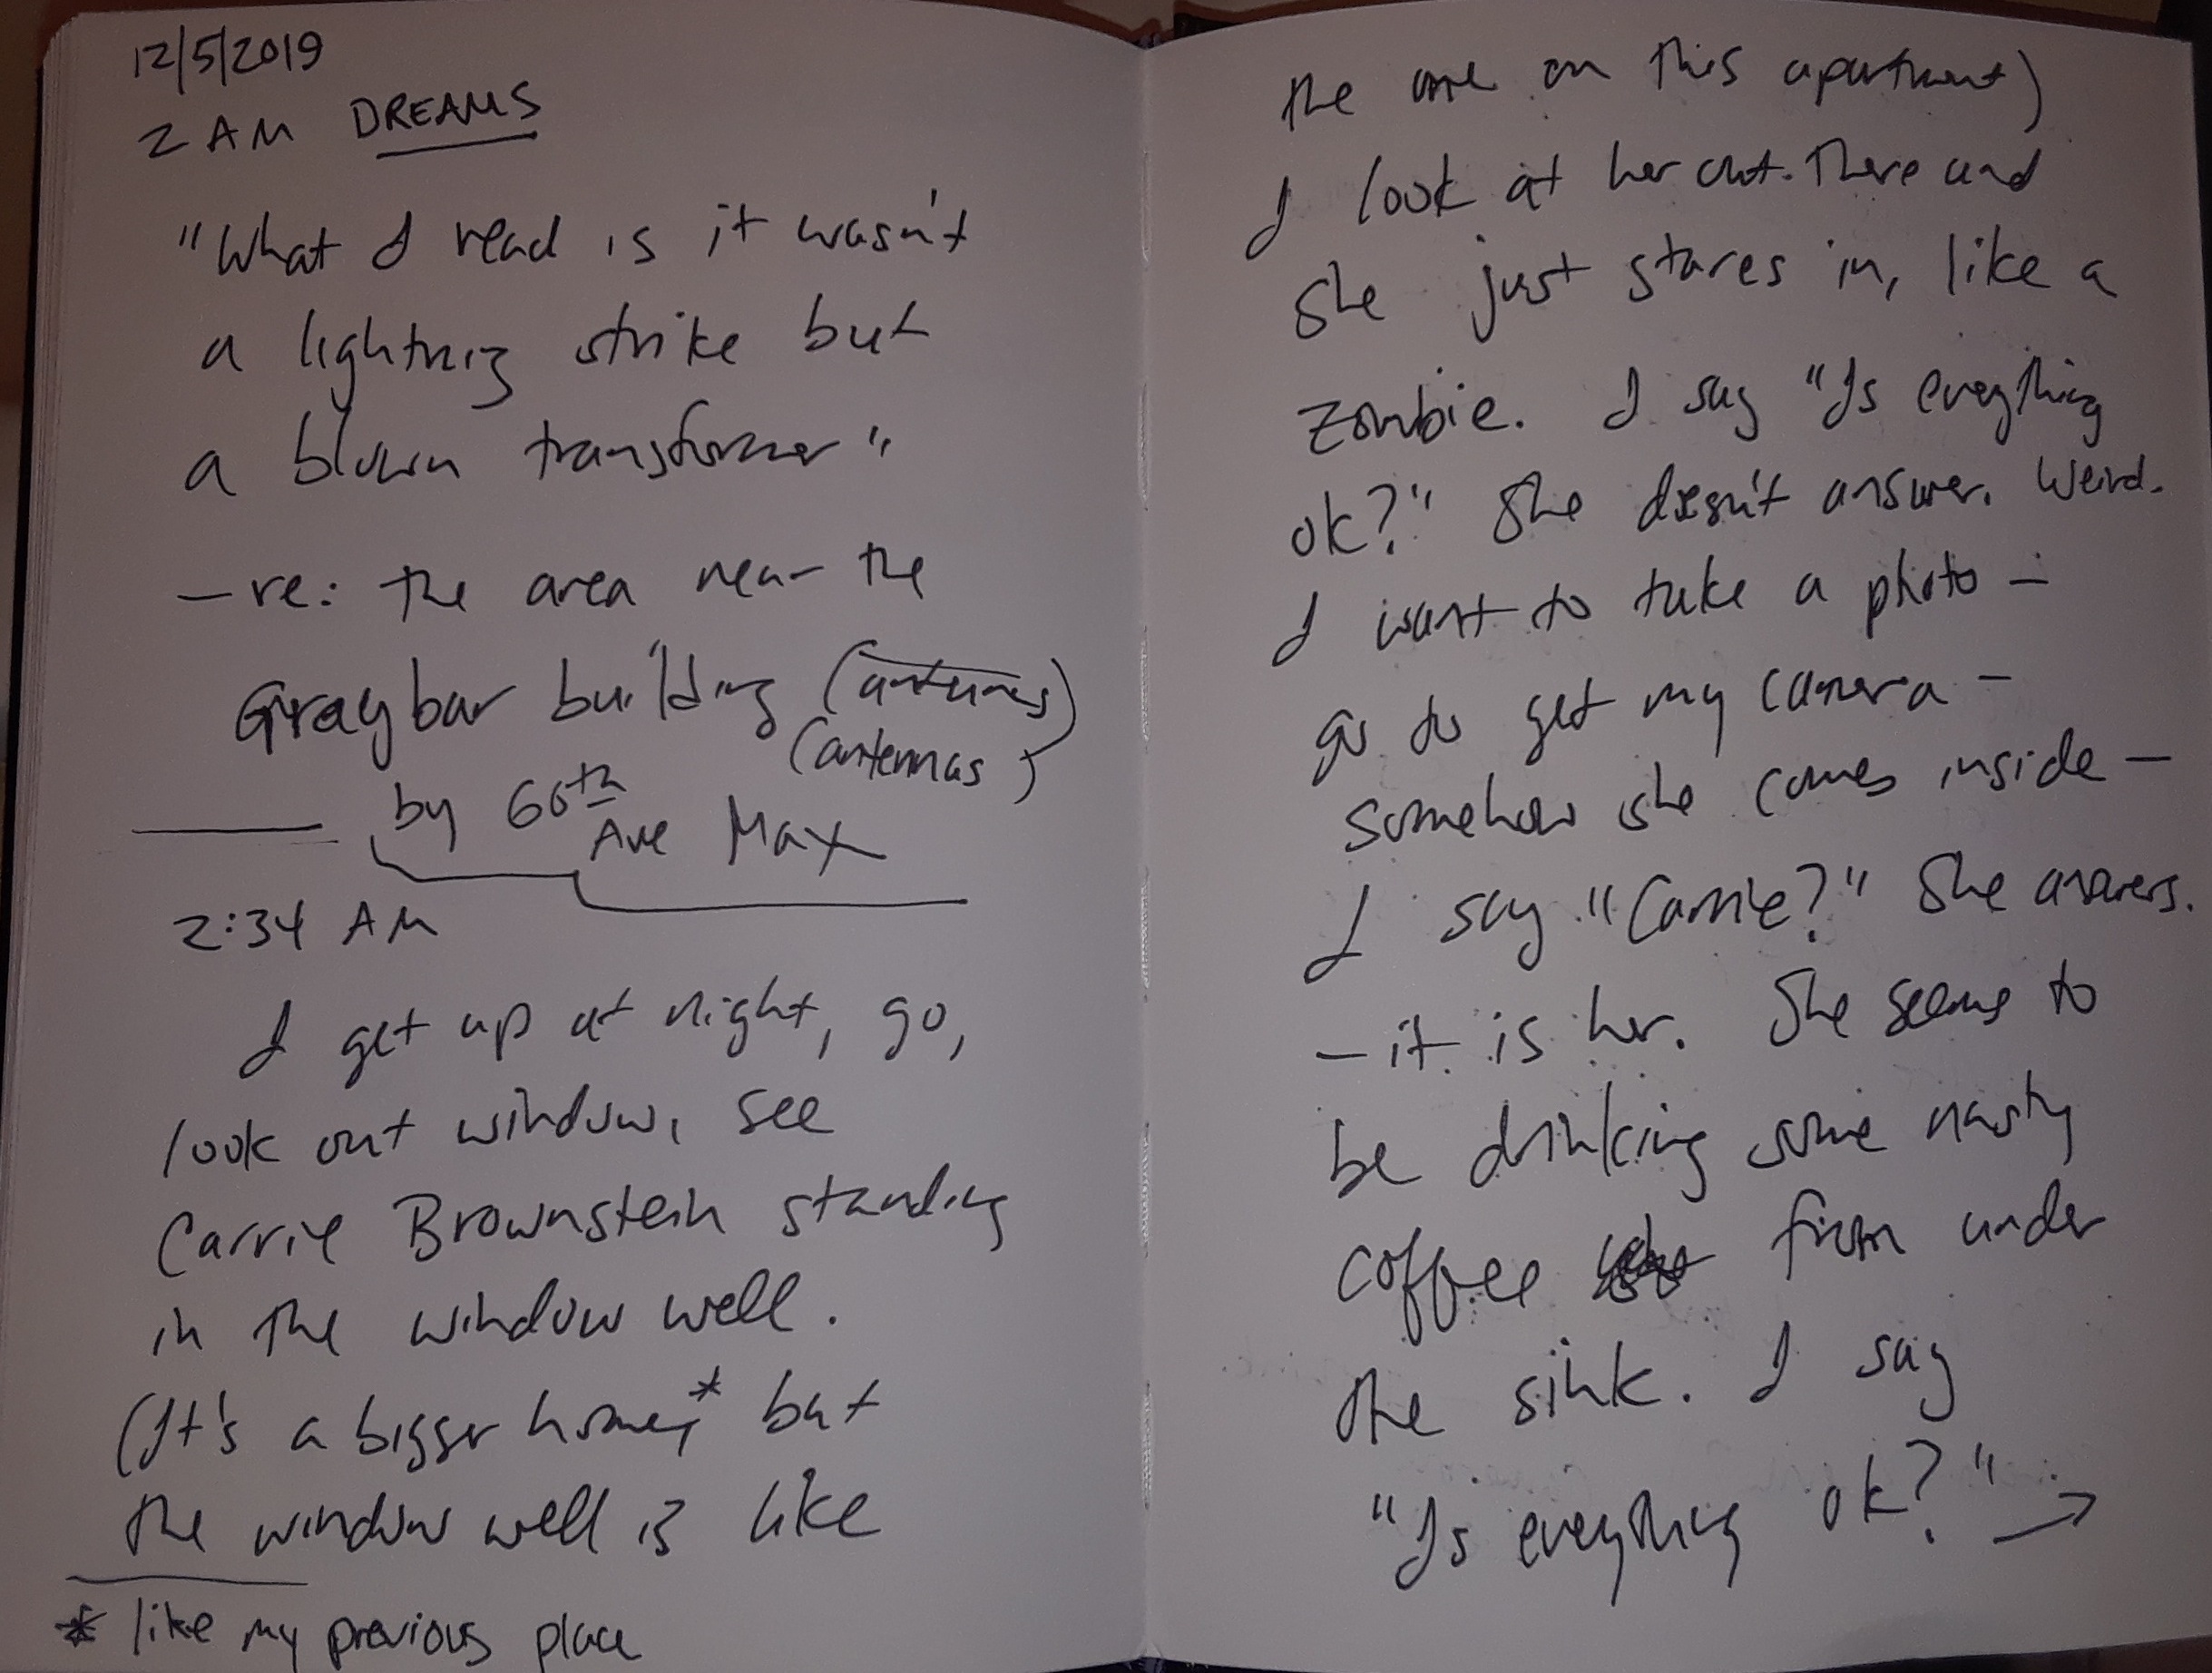 12/5/2019
2 AM DREAMS
"What I read is it wasn't
a lightning strike but
a blown transformer"
—re: the area near the
Graybar building (antennes)
(antennas)
by 60th
Ave Max
2:34 AM
I get up at night, go,
look out window, see
Carrie Brownstein standing
in the window well.
(It's a bigger home,* but
the window well is like
* like my previous place
the one on this apartment)
I look at her out there and
she just stares in, like a
zombie. I say "Is everything
ok?" She doesn't answer. Weird.
I want to take a photo —
go to get my camera —
somehow she comes inside —
I say "Carrie?" She answers.
— it is her. She seems to
be drinking some nasty
coffee from under
the sink. I say
"Is everything ok?" →